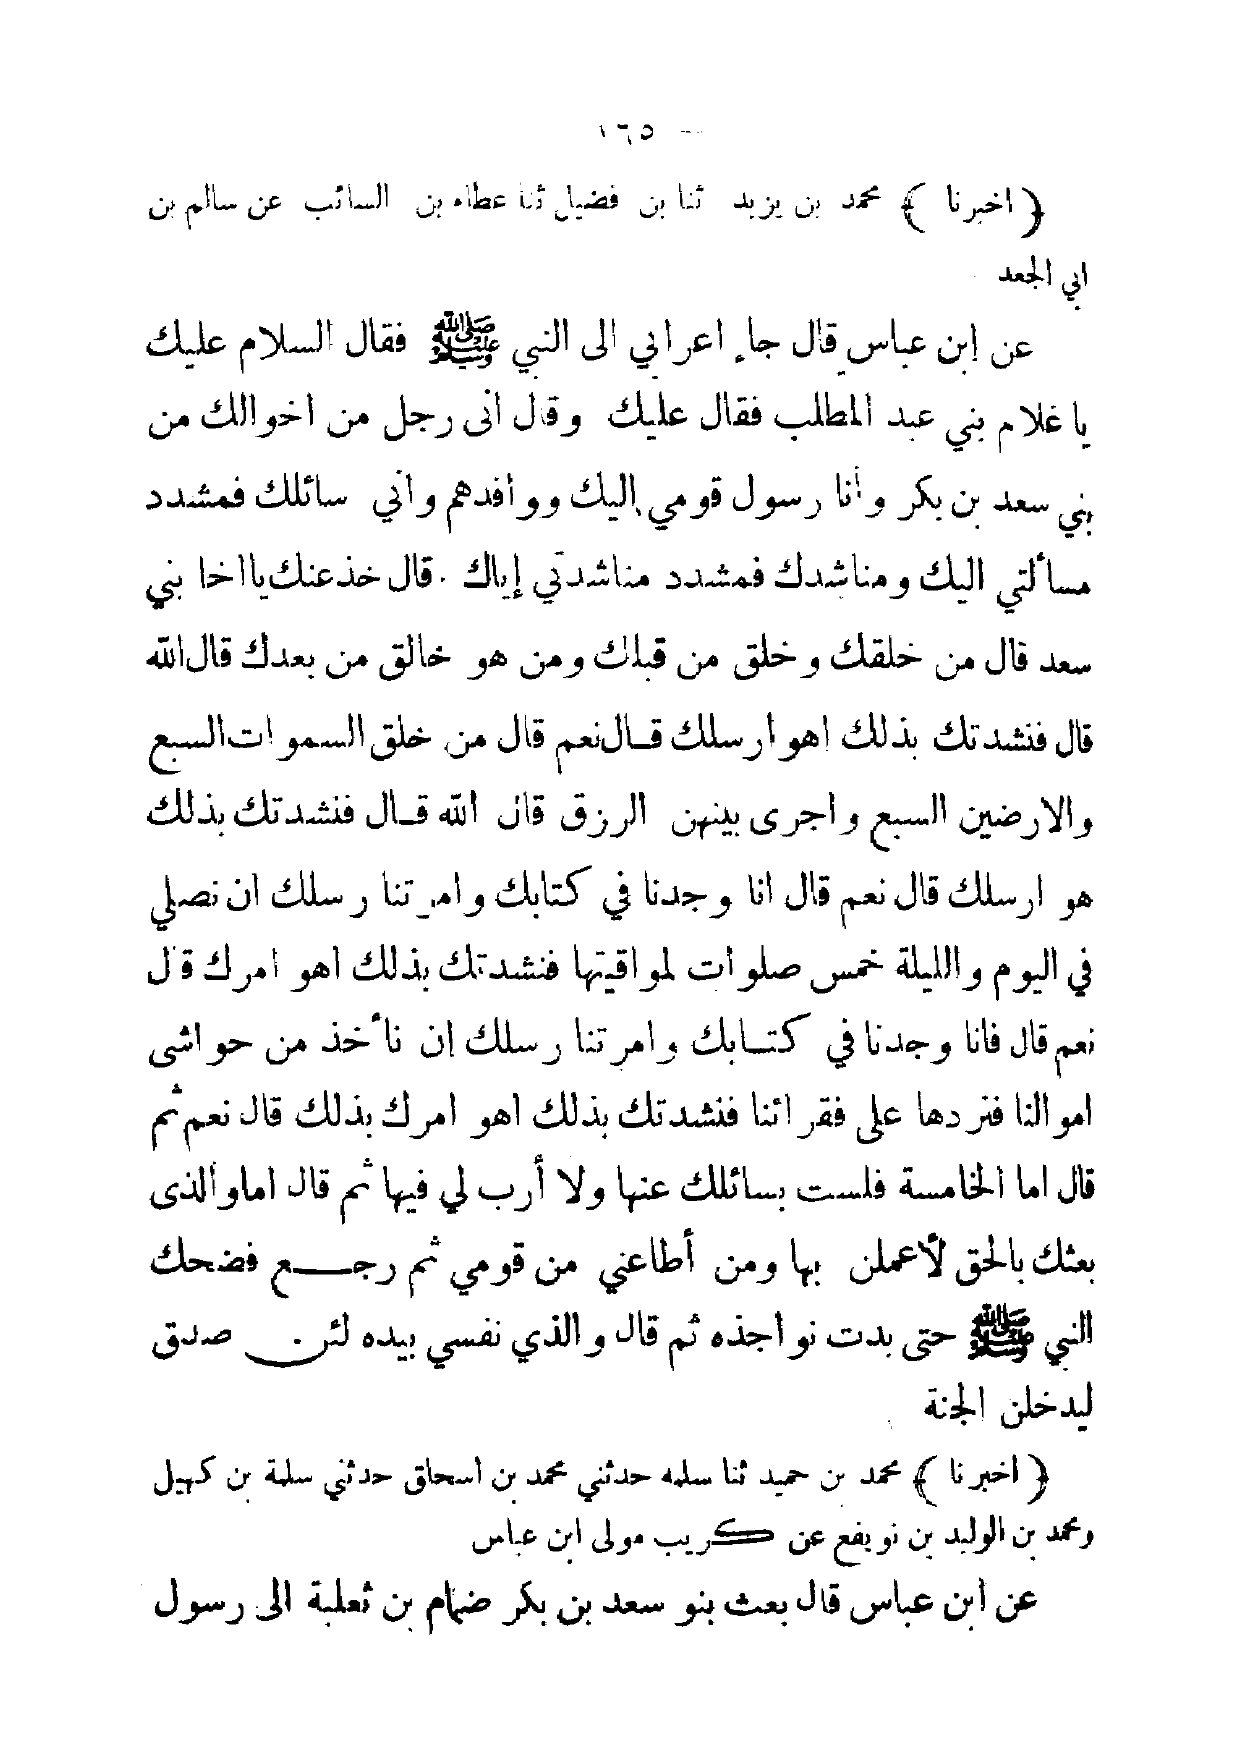 ١٦٥ —
﴿ اخبرنا ﴾ محمد بن يزيد ثنا بن فضيل ثنا عطاء بن السائب عن سالم بن
ابي الجعد
عن ابن عباس قال جاء اعرابي الى النبي ﷺ فقال السلام عليك
يا غلام بني عبد المطلب فقال عليك وقال أنى رجل من اخوالك من
بني سعد بن بكر وأنا رسول قومي اليك ووافدهم وأني سائلك فمشدد
مسألتي اليك ومناشدك فمشدد مناشدتي إياك قال خذ عنك يا اخا بني
سعد قال من خلقك وخلق من قبلك ومن هو خالق من بعدك قال الله
قال فنشدتك بذلك اهو ارسلك قال نعم قال من خلق السموات السبع
والارضين السبع واجرى بينهن الرزق قال الله قال فنشدتك بذلك
هو ارسلك قال نعم قال انا وجدنا في كتابك وامرتنا رسلك ان نصلي
في اليوم والليلة خمس صلوات لمواقيتها فنشدتك بذلك اهو امرك قال
نعم قال فانا وجدنا في كتابك وامرتنا رسلك ان نأخذ من حواشى
اموالنا فتردها على فقرائنا فنشدتك بذلك اهو امرك بذلك قال نعم ثم
قال اما الخامسة فلست بسائلك عنها ولا أرب لي فيها ثم قال اما والذى
بعثك بالحق لأعملن بها ومن أطاعني من قومي ثم رجع فضحك
النبي ﷺ حتى بدت نواجذه ثم قال والذي نفسي بيده لئن صدق
ليدخلن الجنة
﴿ اخبرنا ﴾ محمد بن حميد ثنا سلمه حدثني محمد بن اسحاق حدثني سلمة بن كهيل
ومحمد بن الوليد بن نويفع عن كريب مولى ابن عباس
عن ابن عباس قال بعث بنو سعد بن بكر ضمام بن ثعلبة الى رسول